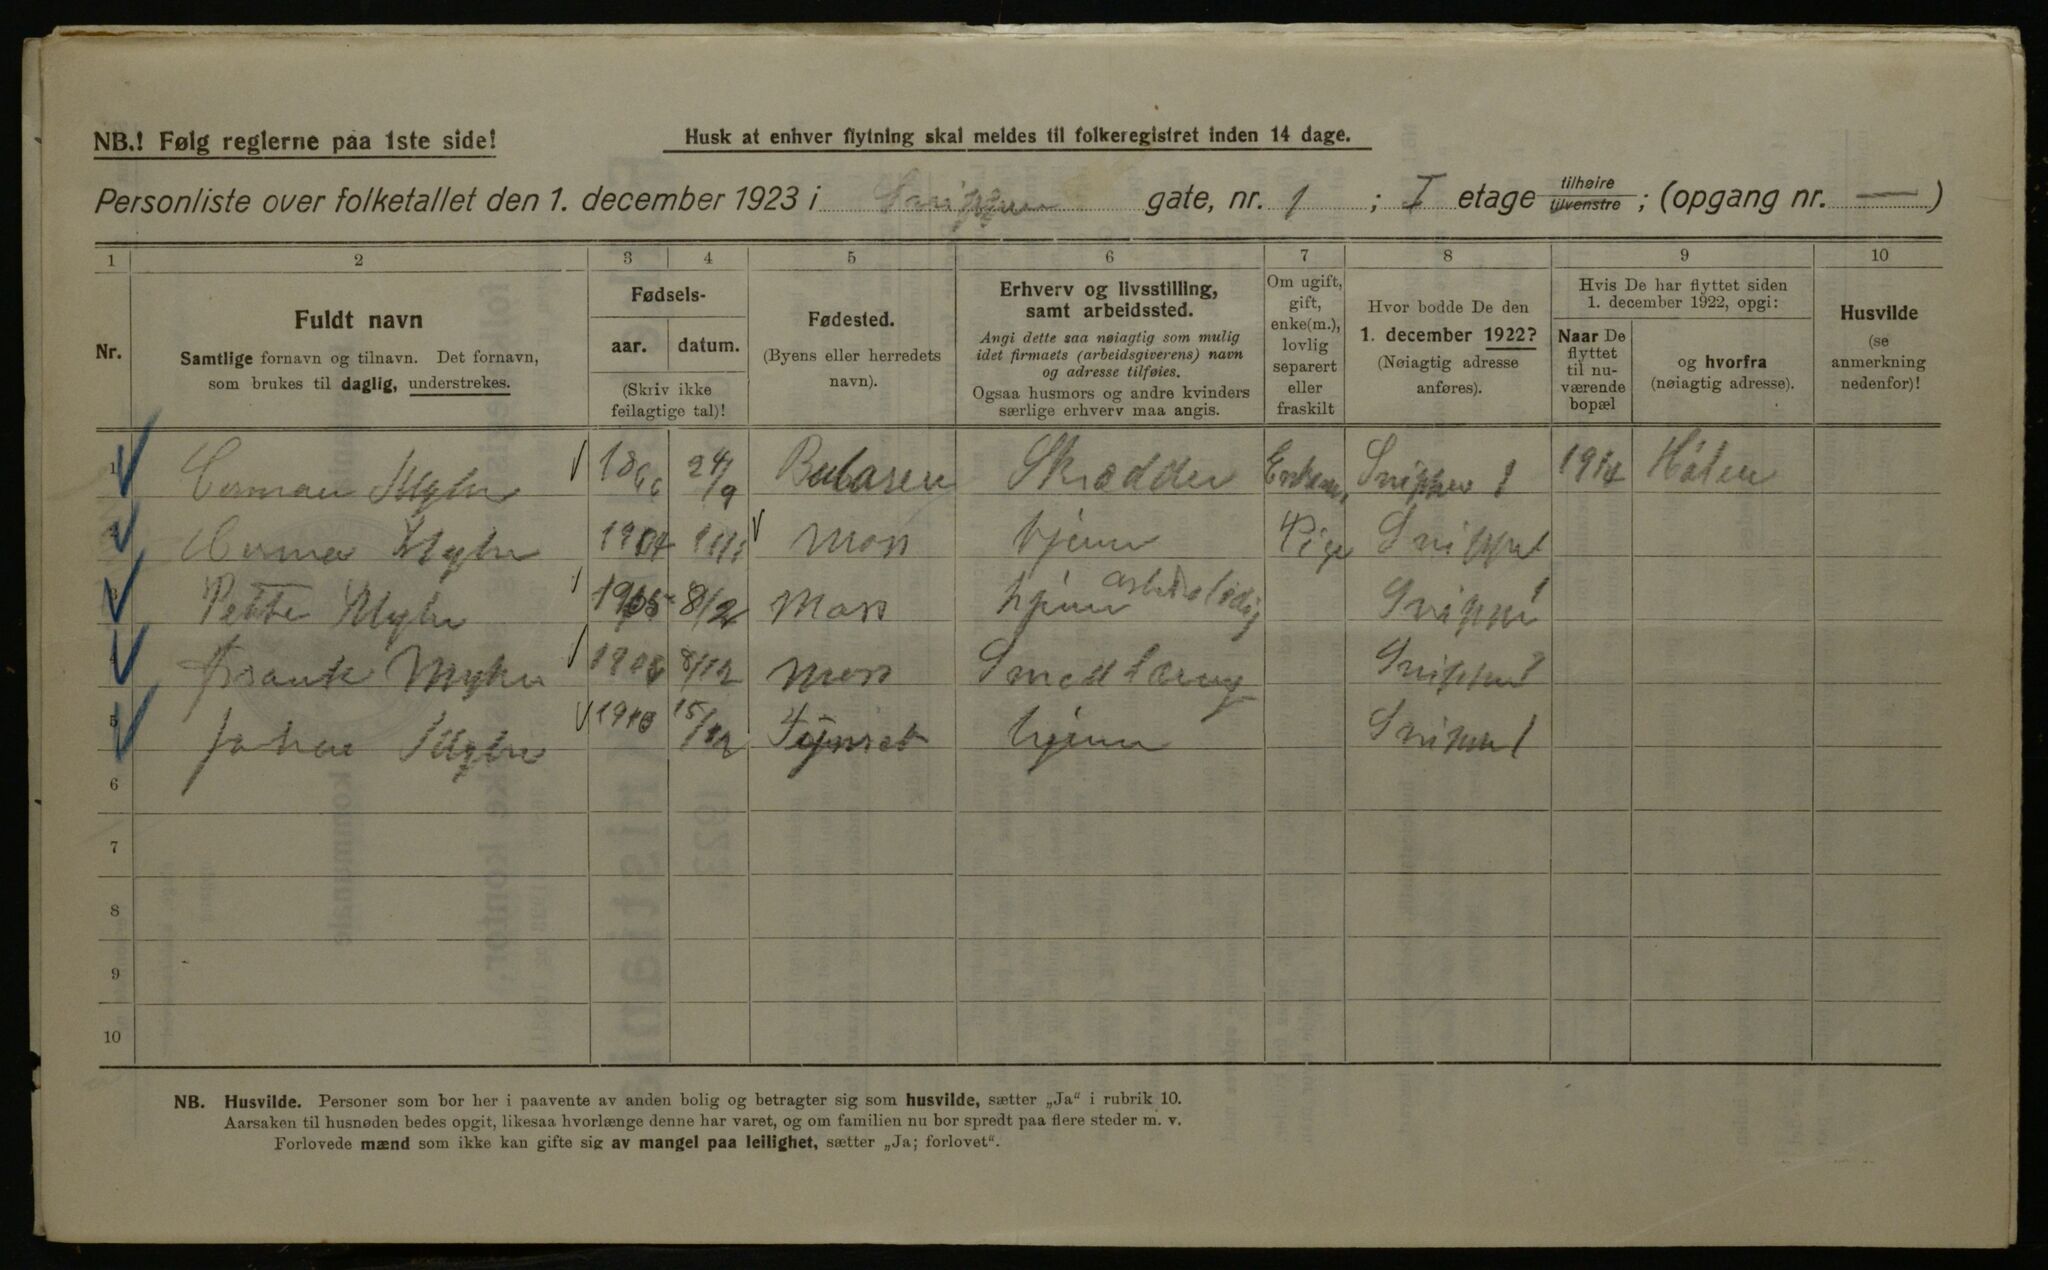 NB.! Følg reglerne paa 1ste side!
Husk at enhver flytning skal meldes til folkeregistret inden 14 dage.
Personliste over folketallet den 1. december 1923 i Snippen gate, nr. 1 ; I etage tilhøire tilvenstre ; (opgang nr. — )
1 2 3 4 5 6 7 8 9 10
Nr.
Fuldt navn
Samtlige fornavn og tilnavn. Det fornavn,
som brukes til daglig, understrekes.
Fødsels-
aar. datum.
(Skriv ikke
feilagtige tal)!
Fødested.
(Byens eller herredets
navn).
Erhverv og livsstilling,
samt arbeidssted.
Angi dette saa nøiagtig som mulig
idet firmaets (arbeidsgiverens) navn
og adresse tilføies.
Ogsaa husmors og andre kvinders
særlige erhverv maa angis.
Om ugift,
gift,
enke(m.),
lovlig
separert
eller
fraskilt
Hvor bodde De den
1. december 1922?
(Nøiagtig adresse
anføres).
Hvis De har flyttet siden
1. december 1922, opgi:
Naar De
flyttet
til nu-
værende
bopæl
og hvorfra
(nøiagtig adresse).
Husvilde
(se
anmerkning
nedenfor)!
1 Herman Myhre 1866 24/9 Skrædder Enkem. Snippen 1 1914
2 Myhre 1904 Moss hjemme Pige Snipp 1
3 Myhre 1905 8/2 Moss hjemme arbeidsledig Snipp 1
4 Frank Myhre 8/12 Moss Smedlæring Snippen 1
5 Johan Myhre 15/12 Tynset hjemme Snippen 1
6
7
8
9
10
NB. Husvilde. Personer som bor her i paavente av anden bolig og betragter sig som husvilde, sætter „Ja“ i rubrik 10.
Aarsaken til husnøden bedes opgit, likesaa hvorlænge denne har varet, og om familien nu bor spredt paa flere steder m. v.
Forlovede mænd som ikke kan gifte sig av mangel paa leilighet, sætter „Ja; forlovet“.